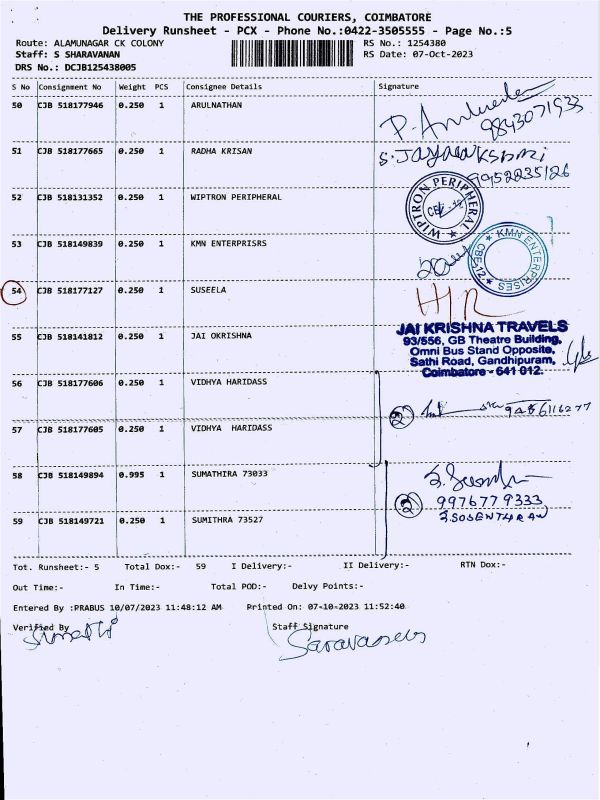 THE PROFESSIONAL COURIERS, COIMBATORE
Delivery Runsheet - PCX - Phone No.:0422-3505555 - Page No.:5
Route: ALAMUNAGAR CK COLONY RS No.: 1254380
Staff: S SHARAVANAN RS Date: 07-Oct-2023
DRS No.: DCJB125438005
S No Consignment No Weight PCS Consignee Details Signature
50 CJB 518177946 0.250 1 ARULNATHAN
9843071933
51 CJB 518177665 0.250 1 RADHA KRISAN
9952235126
52 CJB 518131352 0.250 1 WIPTRON PERIPHERAL
WIPTRON PERIPHERAL
53 CJB 518149839 0.250 1 KMN ENTERPRISRS
KMN ENTERPRISES
54 CJB 518177127 0.250 1 SUSEELA
55 CJB 518141812 0.250 1 JAI OKRISHNA
JAI KRISHNA TRAVELS
93/556, GB Theatre Building,
Omni Bus Stand Opposite,
Sathi Road, Gandhipuram,
Coimbatore - 641 012.
56 CJB 518177606 0.250 1 VIDHYA HARIDASS
2
57 CJB 518177605 0.250 1 VIDHYA HARIDASS
58 CJB 518149894 0.995 1 SUMATHIRA 73033
2 9976779333
59 CJB 518149721 0.250 1 SUMITHRA 73527
Tot. Runsheet:- 5 Total Dox:- 59 I Delivery:- II Delivery:- RTN Dox:-
Out Time:- In Time:- Total POD:- Delvy Points:-
Entered By :PRABUS 10/07/2023 11:48:12 AM Printed On: 07-10-2023 11:52:40
Verified By Staff Signature